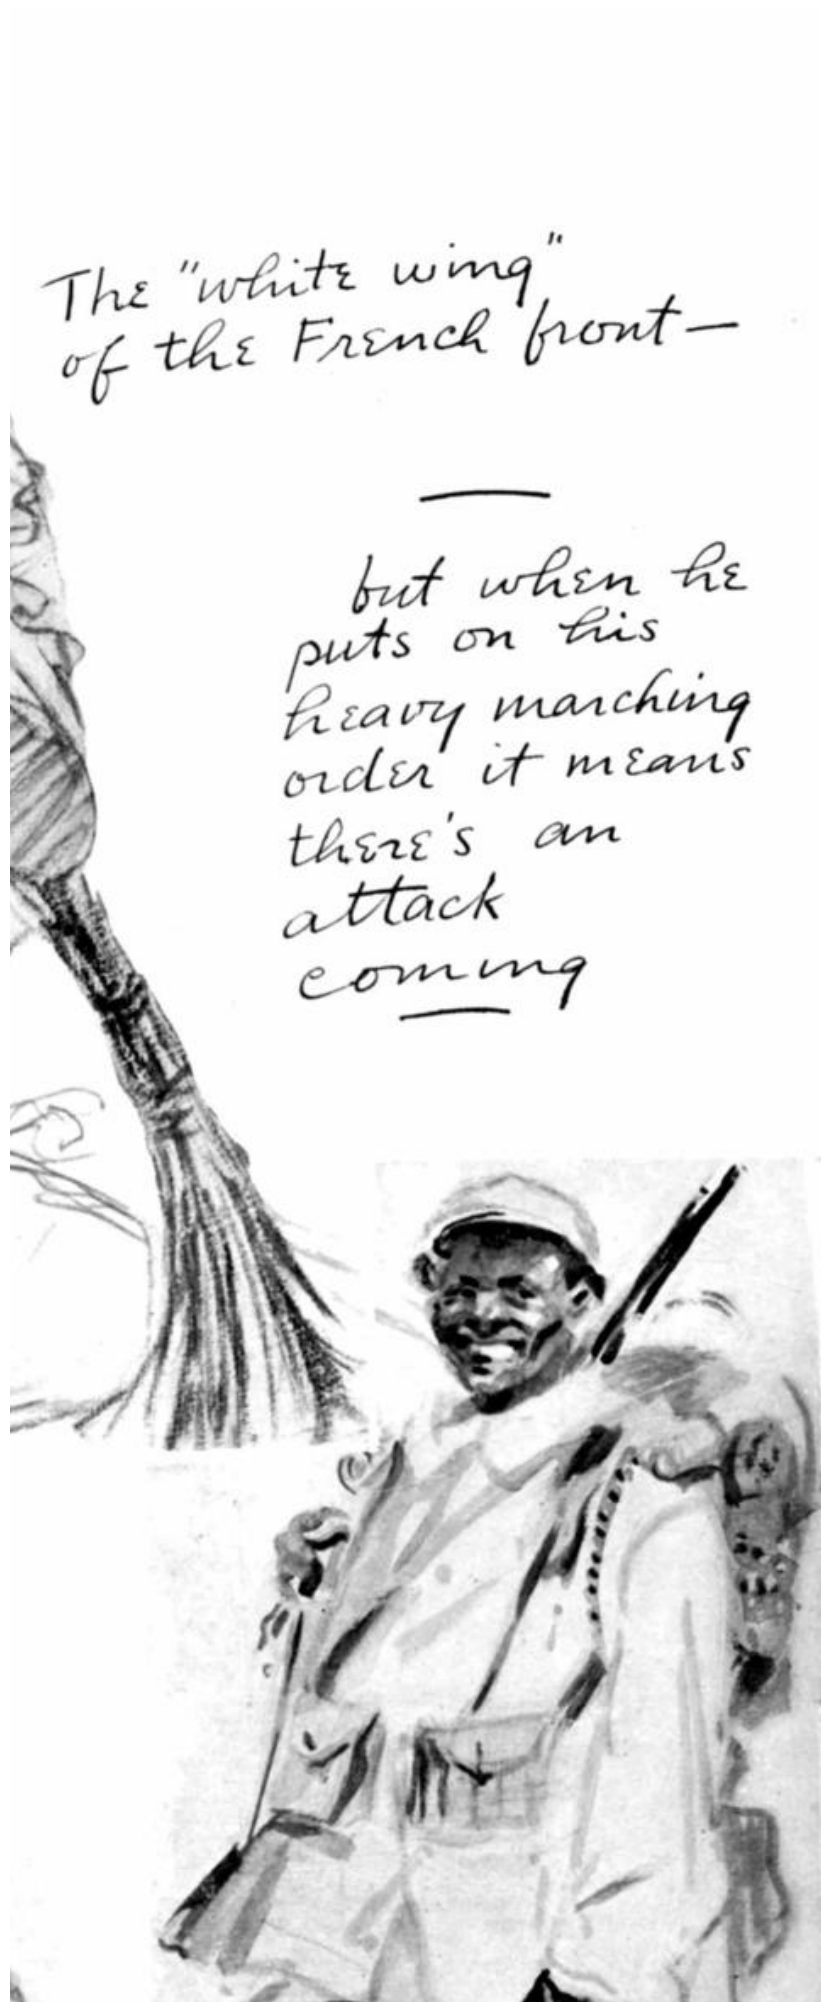 The "white wing"
of the French front—
but when he
puts on his
heavy marching
order it means
there's an
attack
coming